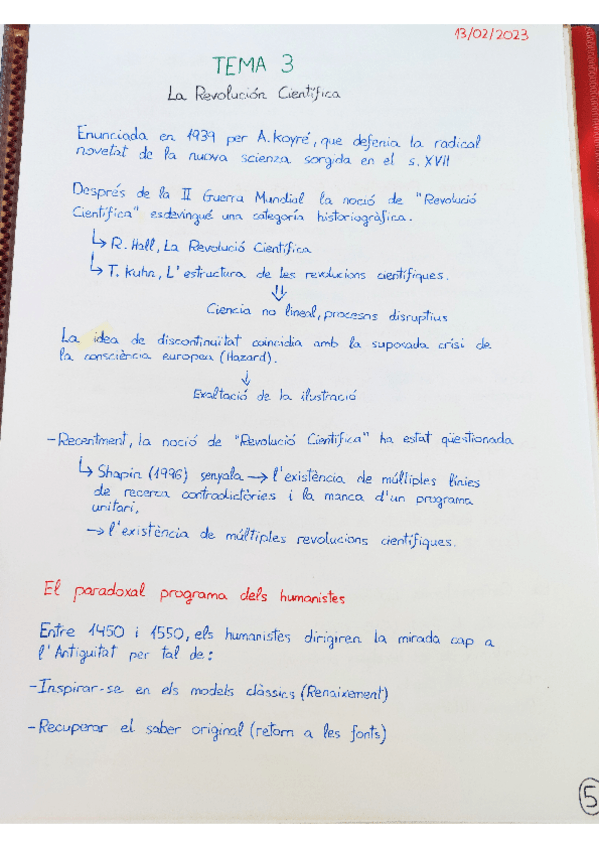 13/02/2023
TEMA 3
La Revolución Científica
Enunciada en 1939 per A. Koyré, que defenia la radical
novetat de la nuova scienza sorgida en el s. XVII
Després de la II Guerra Mundial la noció de "Revolució
Científica" esdevingué una categoría historiogràfica.
↳ R. Hall, La Revolució Científica
↳ T. Kuhn, L'estructura de les revolucions científiques.
⇓
Ciencia no lineal, procesos disruptius
La idea de discontinuïtat coincidia amb la suposada crisi de
la consciència europea (Hazard).
↓
Exaltació de la ilustració
-Recentment, la noció de "Revolució Científica" ha estat qüestionada
↳ Shapin (1996) senyala → l'existència de múltiples línies
de recerca contradictòries i la manca d'un programa
unitari,
→ l'existència de múltiples revolucions científiques.
El paradoxal programa dels humanistes
Entre 1450 i 1550, els humanistes dirigiren la mirada cap a
l'Antiguitat per tal de:
-Inspirar-se en els models clàssics (Renaixement)
-Recuperar el saber original (retorn a les fonts)
5